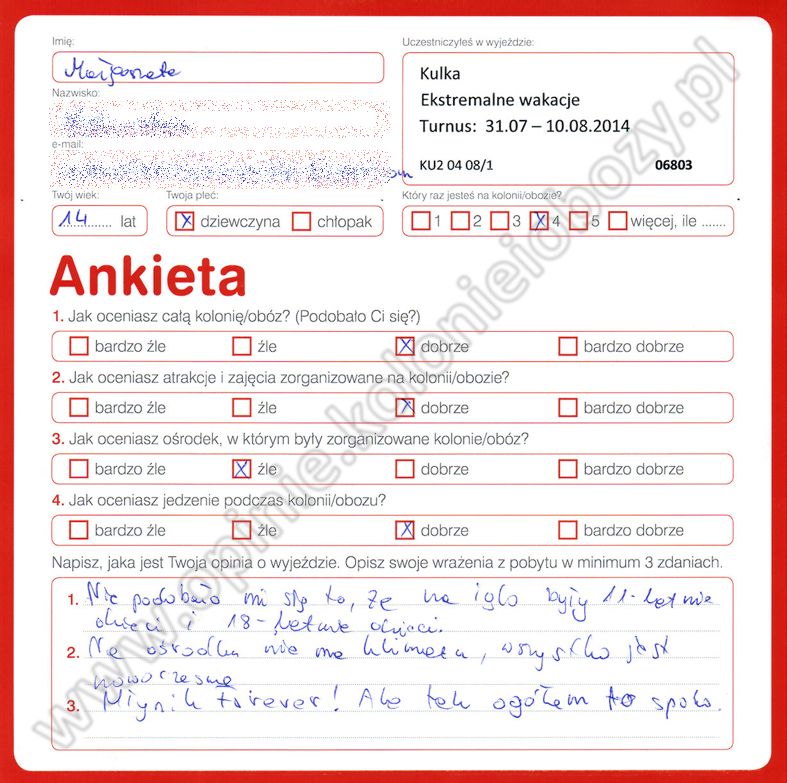 Imię:
Uczestniczyłeś w wyjeździe:
Małgorzata
Kulka
Nazwisko:
Ekstremalne wakacje
Turnus: 31.07 – 10.08.2014
e-mail:
KU2 04 08/1 06803
Twój wiek: Twoja płeć: Który raz jesteś na kolonii/obozie?
14 lat X dziewczyna chłopak 1 2 3 X 4 5 więcej, ile .......
Ankieta
1. Jak oceniasz całą kolonię/obóz? (Podobało Ci się?)
bardzo źle źle X dobrze bardzo dobrze
2. Jak oceniasz atrakcje i zajęcia zorganizowane na kolonii/obozie?
bardzo źle źle X dobrze bardzo dobrze
3. Jak oceniasz ośrodek, w którym były zorganizowane kolonie/obóz?
bardzo źle X źle dobrze bardzo dobrze
4. Jak oceniasz jedzenie podczas kolonii/obozu?
bardzo źle źle X dobrze bardzo dobrze
Napisz, jaka jest Twoja opinia o wyjeździe. Opisz swoje wrażenia z pobytu w minimum 3 zdaniach.
1. Nie podobało mi się to, że na iglo były 11-letnie
dzieci i 18-letnie dzieci.
2. Na ośrodku nie ma klimatu, wszystko jest
nowoczesne
3. Młynik forever! Ale tak ogółem to spoko.
www.opinie.kolonieiobozy.pl